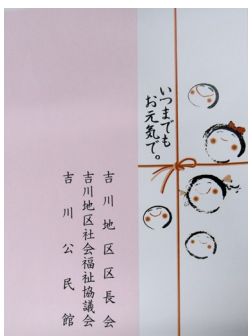 いつまでも
お元気で。
吉川地区区長会
吉川地区社会福祉協議会
吉川公民館